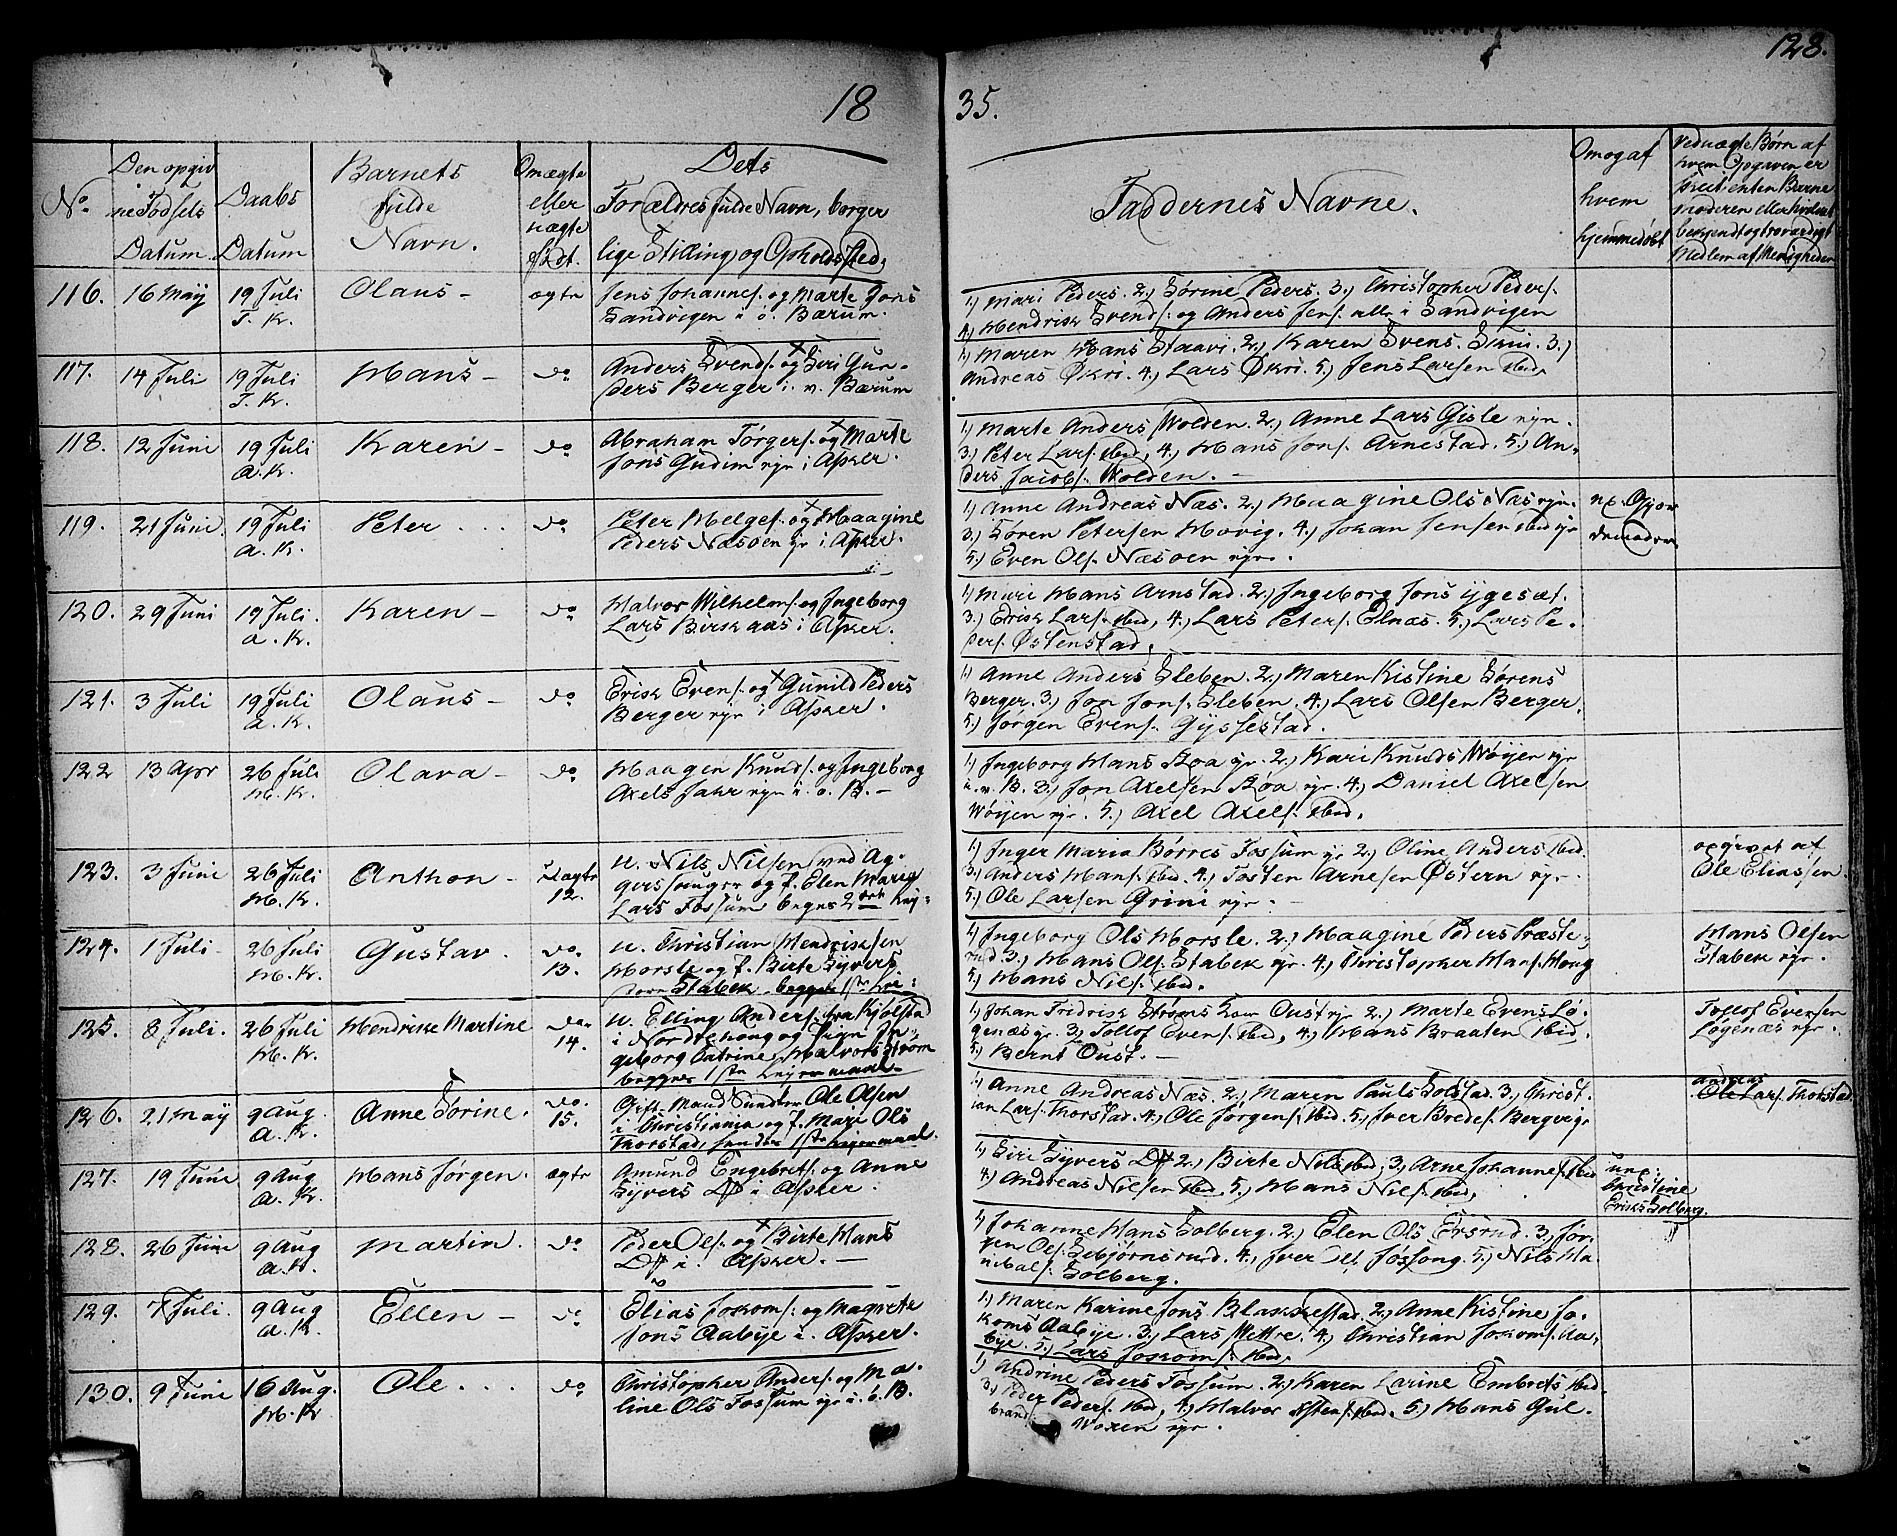 128.
18 35.
No
Den opgiv
ne Fødsels
Datum.
Daabs
Datum
Barnets
fulde
Navn.
Om ægte
eller
uægte
født.
Dets
Forældres fulde Navn, borger
lige Stilling og Opholdssted.
Faddernes Navne.
Om og af
hvem
hjemmedøbt
Ved uægte Børn af
hvem Opgiven er
skeet enten Barne
moderen eller hvilket
bekjendt og troværdigt
Medlem af Menigheden
116. 16 May 19 Juli Olaus - ægte Jens Johannes. og Marte Jons
T. K. Sandvigen i ø. Bærum.
1.) Mari Peders. 2.) Sørine Peders. 3.) Christopher Peders.
4.) Hendrik Svends. og Anders Jens. alle i Sandvigen
117. 14 Juli 19 Juli Hans - do Anders Svends. og Siri Gun-
T. K. ders Berger i v. Bærum
1.) Maren Hans Staavi. 2.) Karen Svens. Skui. 3.)
Andreas Økri. 4.) Lars Økri. 5.) Jens Larsen ibid.
118. 12 Juni 19 Juli Karen - do Abraham Tørgers. og Marte
A. K. Jons Gudim eje i Asker.
1.) Marte Anders Wolden. 2.) Anne Lars Gisle eje.
3.) Peter Lars. ibid, 4.) Hans Jons. Arnestad. 5.) An-
ders Jacobs. Wolden. -
119. 21 Juni 19 Juli Peter . . . do Peter Helges. og Haagine
A. K. Peders Næsøen eje i Asker.
1.) Anne Andreas Næs. 2.) Haagine Ols Næs eje.
3.) Søren Petersen Hovig. 4.) Johan Jensen ibid eje
5.) Even Ols. Næsøen eje.
120. 29 Juni 19 Juli. Karen - do Halvor Wilhelms. og Ingeborg
A. K. Lars Birkaas i Asker.
1.) Mari Hans Arnstad. 2.) Ingeborg Jons
3.) Erik Lars. ibid, 4.) Lars Peters. Elnæs. 5.) Lars Pe-
ders. Østenstad.
121. 3 Juli 19 Juli Olaus - do Erik Evens. og Gunild Peders
A. K. Berger eje i Asker.
1.) Anne Anders Sleben. 2.) Maren Kistine Sørens
Berger. 3.) Jon Jons. Sleben. 4.) Lars Olsen Berger.
5.) Jørgen Evens. Gyssestad.
122 13 Apr 26 Juli Olava - do Haagen Knuds. og Ingeborg
H. K. Axels Jahr eje i ø. B. -
1.) Ingeborg Hans Roa eje. 2.) Kari Knuds Wøyen eje
i v. B. 3.) Jon Axelsen Roa eje. 4.) Daniel Axelsen
Wøyen eje. 5.) Axel Axels. ibid.
123. 3 Juni 26 Juli Anthon - Uægte 12. u. Nils Nilsen ved Ag-
H. K. og f. Elen Marie
Lars Fossum begges 2det Lej-
1.) Inger Maria Børres Fossum eje 2.) Oline Anders ibid.
3.) Anders Hans. ibid. 4.) Torsten Arnesen Østern eje.
5.) Ole Larsen Grini eje.
opgivet af
Ole Eliassen
124. 1 Juli. 26 Juli Gustav. do. 13. u. Christian Hendriksen
H. K. Horsle og f. Birte Syvers.
Stabek begges 1ste Lei-
1.) Ingeborg Ols Horsle. 2.) Haagine Peders Præste-
rud 3.) Hans Ols. Stabek eje. 4.) Christopher Hans. Haug
5.) Hans Nils. ibid.
Hans Olsen
Stabek eje.
125. 8 Juli. 26 Juli Hendrikke Martine do. 14. u. Elling Anders. fra Kjølstad
H. K. i Nordrehoug og Pigen In-
geborg Catrine Halvors Strøm
begges 1ste Lejermaal.
1.) Johan Fridrik Strøms Kone Oust eje 2.) Marte Evens Lø-
genæs eje. 3.) Tollof Evens. ibid, 4.) Hans Braaten ibid.
5.) Bernt Oust. -
Tollof Evensen
Løgenæs eje.
126. 21 May 9 Aug. Anne Sørine. do. 15. Gift Mand Ole Olsen
A. K. i Christiania og f. Mari Ols
Thorstad, hendes 1ste Lejermaal.
1.) Anne Andreas Næs. 2.) Maren Pauls Solstad. 3.) Christ-
ian Lars. Thorstad. 4.) Ole Jørgens. ibid. 5.) Iver Bredes. Bergvig
Andreas
Ole Lars. Thorstad
127. 19 Juni 9 Aug Hans Jørgen. ægte Amund Engebrets. og Anne
A. K. Syvers i Asker.
1.) Siri Syvers 2.) Birte Nils ibid, 3.) Arne Johannes. ibid
4.) Andreas Nilsen ibid. 5.) Hans Nils. ibid,
Christine
Eriks Solberg.
128. 26 Juni 9 Aug Martin. do Peder Ols. og Birte Hans
A. K. i Asker. -
1.) Johanne Hans Solberg. 2.) Elen Ols Ersrud. 3.) Jør-
gen Ols. 4.) Iver Ols. 5.) Nils Ha-
Solberg.
129. 7 Juli. 9 Aug Ellen - do Elias Jokoms. og Magrete
A. K. Jons Aabye i Asker.
1.) Maren Karine Jons Blakkestad. 2.) Anne Kistine Jo-
koms Aabye. 3.) Lars Wettre. 4.) Christian Jokoms. Aa-
bye. 5.) Lars Jokoms. ibid.
130. 9 Juni 16 Aug. Ole . . . do Christopher Anders. og Ma-
H. K. line Ols Fossum eje i ø. B.
1.) Andrine Peders Fossum. 2.) Karen Larine Embrets ibid.
3.) Peder Peders. ibid, 4.) Halvor ibid. 5.) Hans Gul-
brands. Woxen eje.